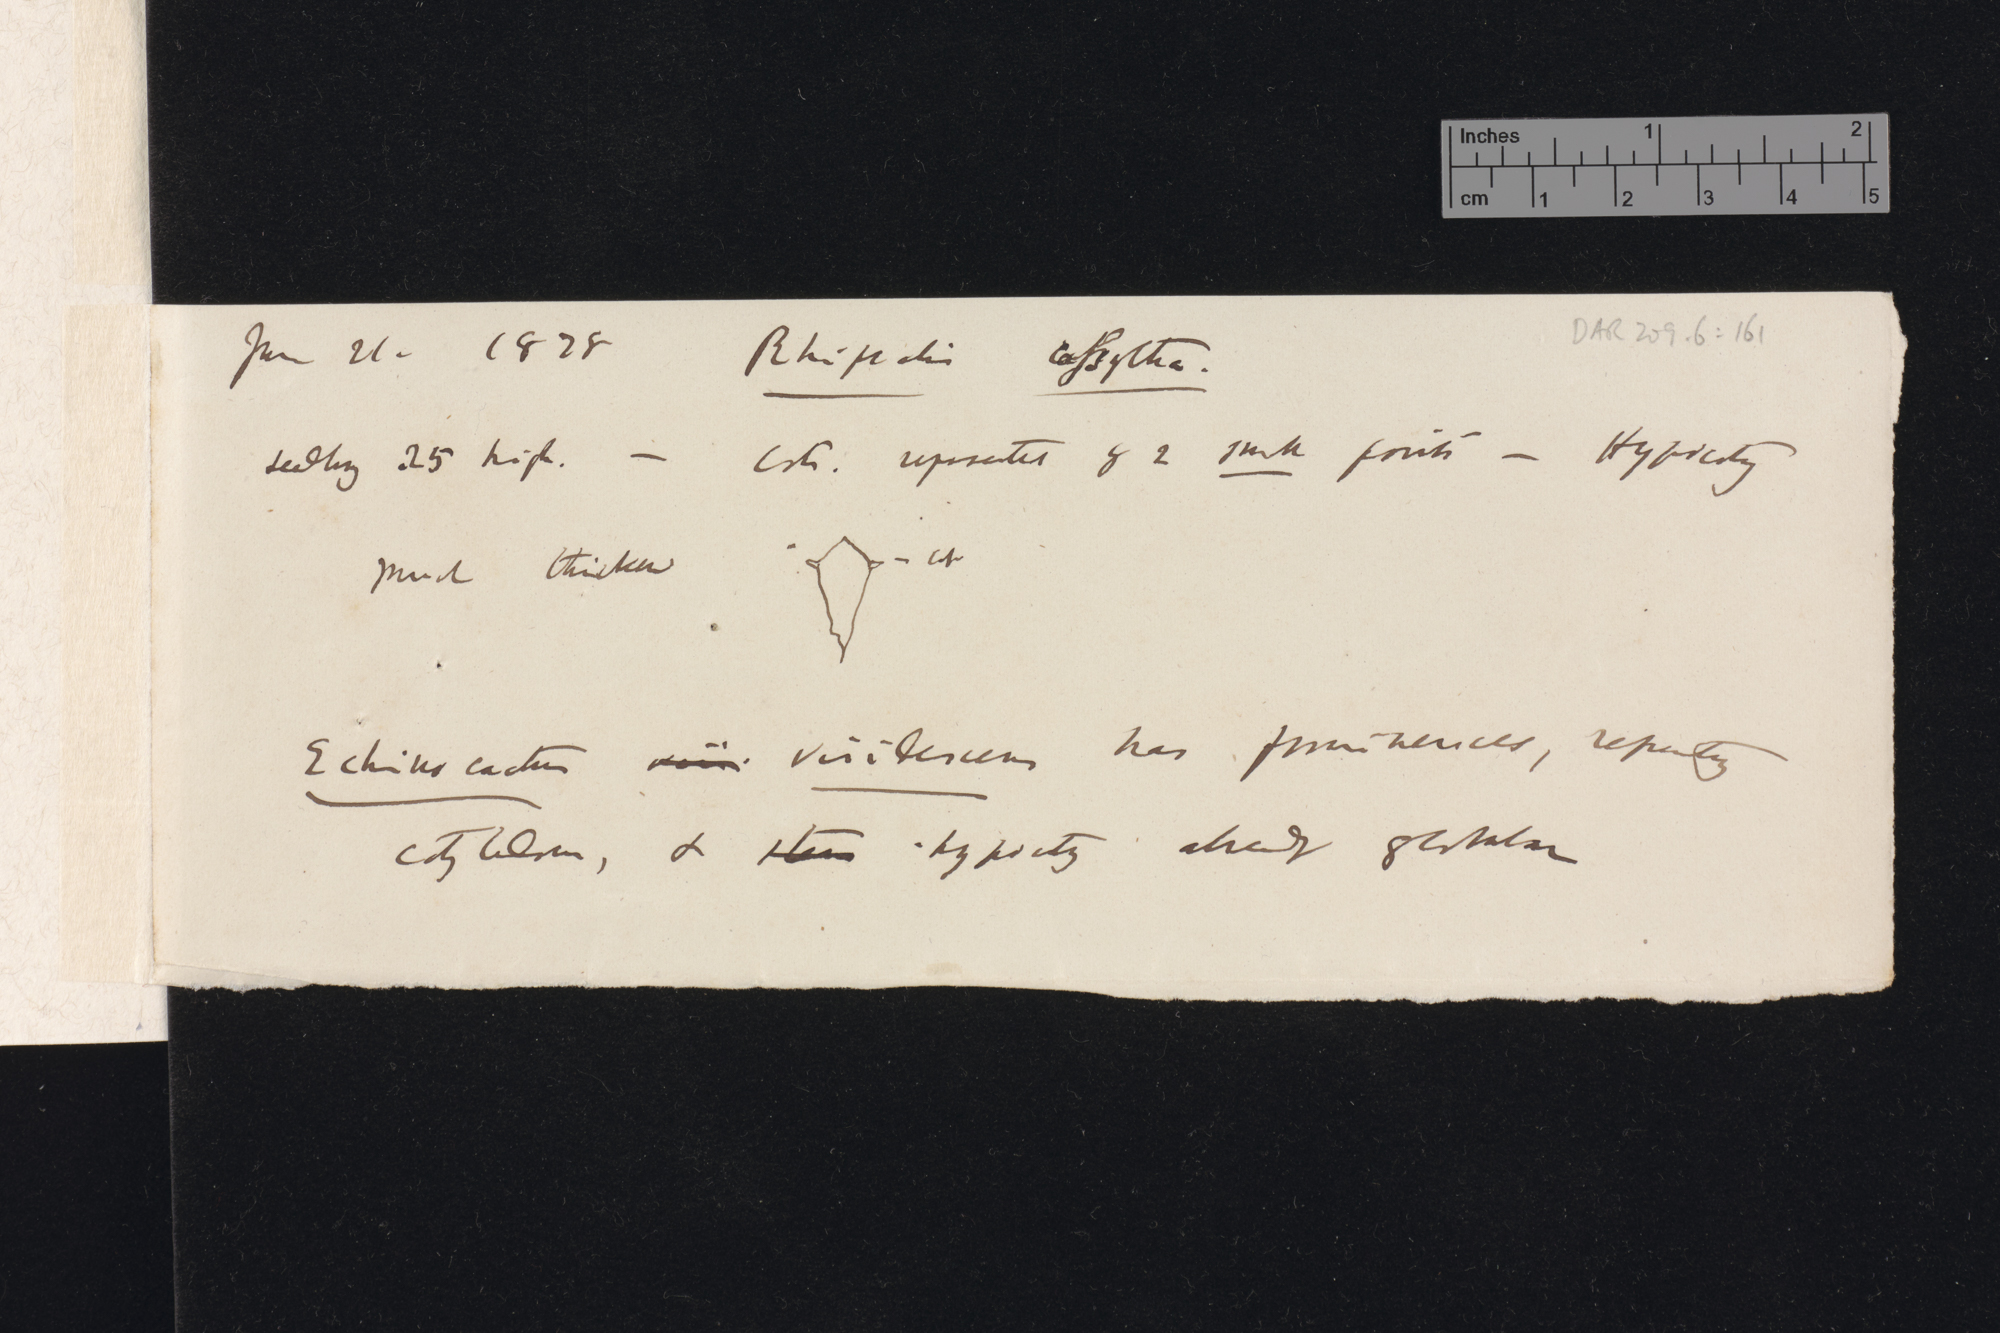 Inches 1 2
cm 1 2 3 4 5
DAR 209.6:161
June 21. 1878 Rhipsalis cassytha.
seedling .25 high. — Cots. represented by 2 small points — Hypocotyl
much thicken
— cot
Echinocactus viri. viridescens has prominences, representing
cotyledons, & stem hypocotyl already globular